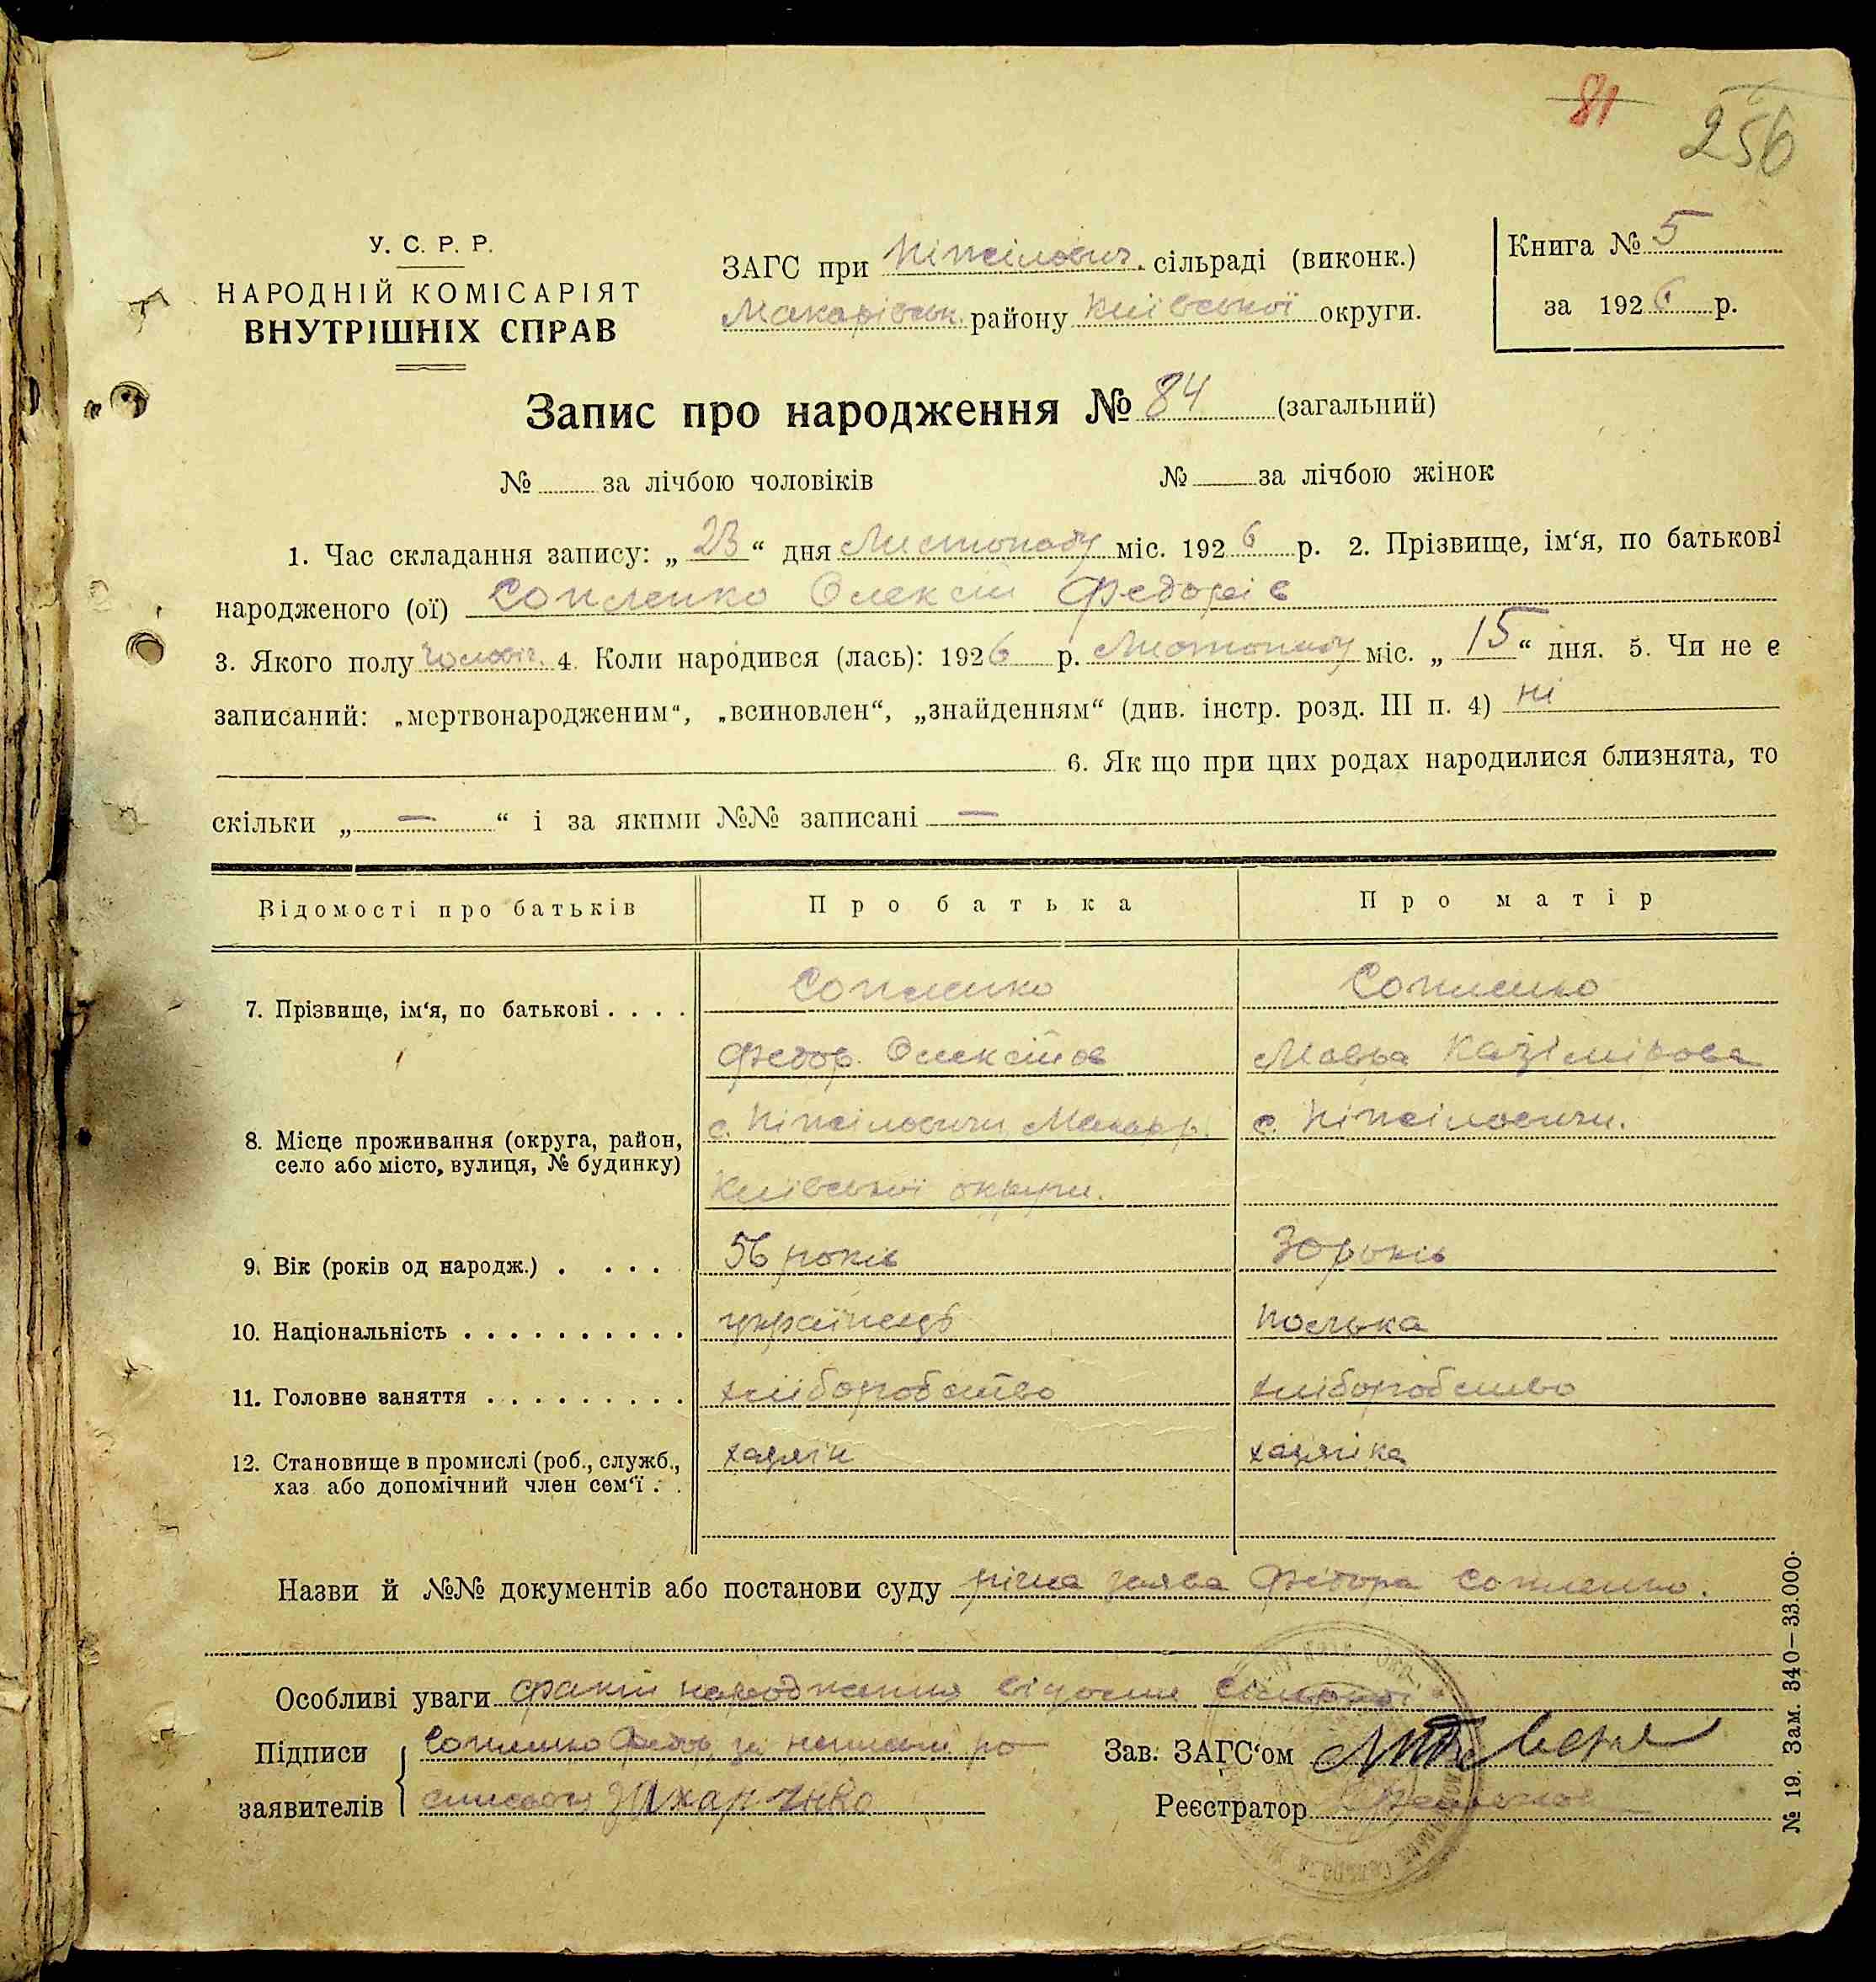 81
256
У. С. Р. Р.
НАРОДНІЙ КОМІСАРІЯТ
ВНУТРІШНІХ СПРАВ
ЗАГС при сільраді (виконк.)
Макарівськ. району Київської округи.
Книга № 5
за 1926 р.
Запис про народження № 84 (загальний)
№ за лічбою чоловіків № за лічбою жінок
1. Час складання запису: „ 23 “ дня Листопаду міс. 1926 р. 2. Прізвище, ім‘я, по батькові
народженого (ої) Сопиленко Олексій Федорів
3. Якого полу чоловіч. 4. Коли народився (лась): 1926 р. Листопаду міс. „ 15 “ дня. 5. Чи не є
записаний: „мертвонародженим“, „всиновлен“, „знайденням“ (див. інстр. розд. III п. 4) ні
6. Як що при цих родах народилися близнята, то
скільки „ — “ і за якими №№ записані —
Відомості про батьків Про батька Про матір
7. Прізвище, ім‘я, по батькові . . . . Сопиленко Сопиленко
Федор Олексійов Мавра Казімірова
8. Місце проживання (округа, район, село або місто, вулиця, № будинку) с. Макар. р. с.
Київської округи.
9. Вік (років од народж.) . . . . . 56 років 30 років
10. Національність . . . . . . . . . . українець полька
11. Головне заняття . . . . . . . . . хліборобство хліборобство
12. Становище в промислі (роб., служб., хаз або допомічний член сем‘ї . . хазяїн хазяїка
Назви й №№ документів або постанови суду заява Федора Сопиленко.
Особливі уваги факт народження відомий сільраді
Підписи Сопиленко Федор
заявителів Захарченко
Зав. ЗАГС‘ом
Реєстратор
№ 19. Зам. 340—33.000.